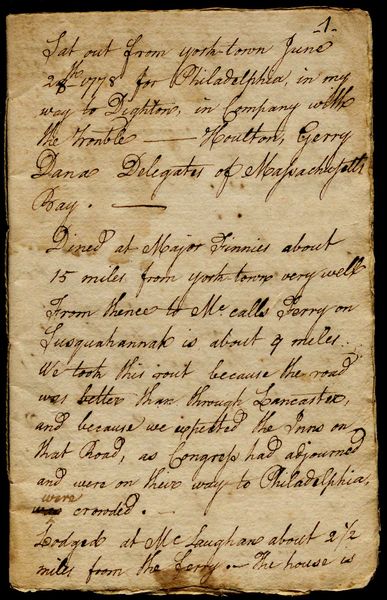 -1-
Sat out from york-town June
28th 1778 for Philadelphia, in my
way to Dighton, in Company with
the Honble — Houlton, Gerry
Dana Delegates of Massachusetts
Bay. —
Dined at Major Finnies about
15 miles from york-town very well
From thence to Mc calls Ferry on
Susquahannah is about 9 miles.
We took this rout because the road
was better than through Lancaster,
and because we expected the Inns on
that Road, as Congress had adjourned
and were on their way to Philadelphia,
were
was crowded. —
Lodged at Mc Laughans about 2 1/2
miles from the Ferry. — The house is